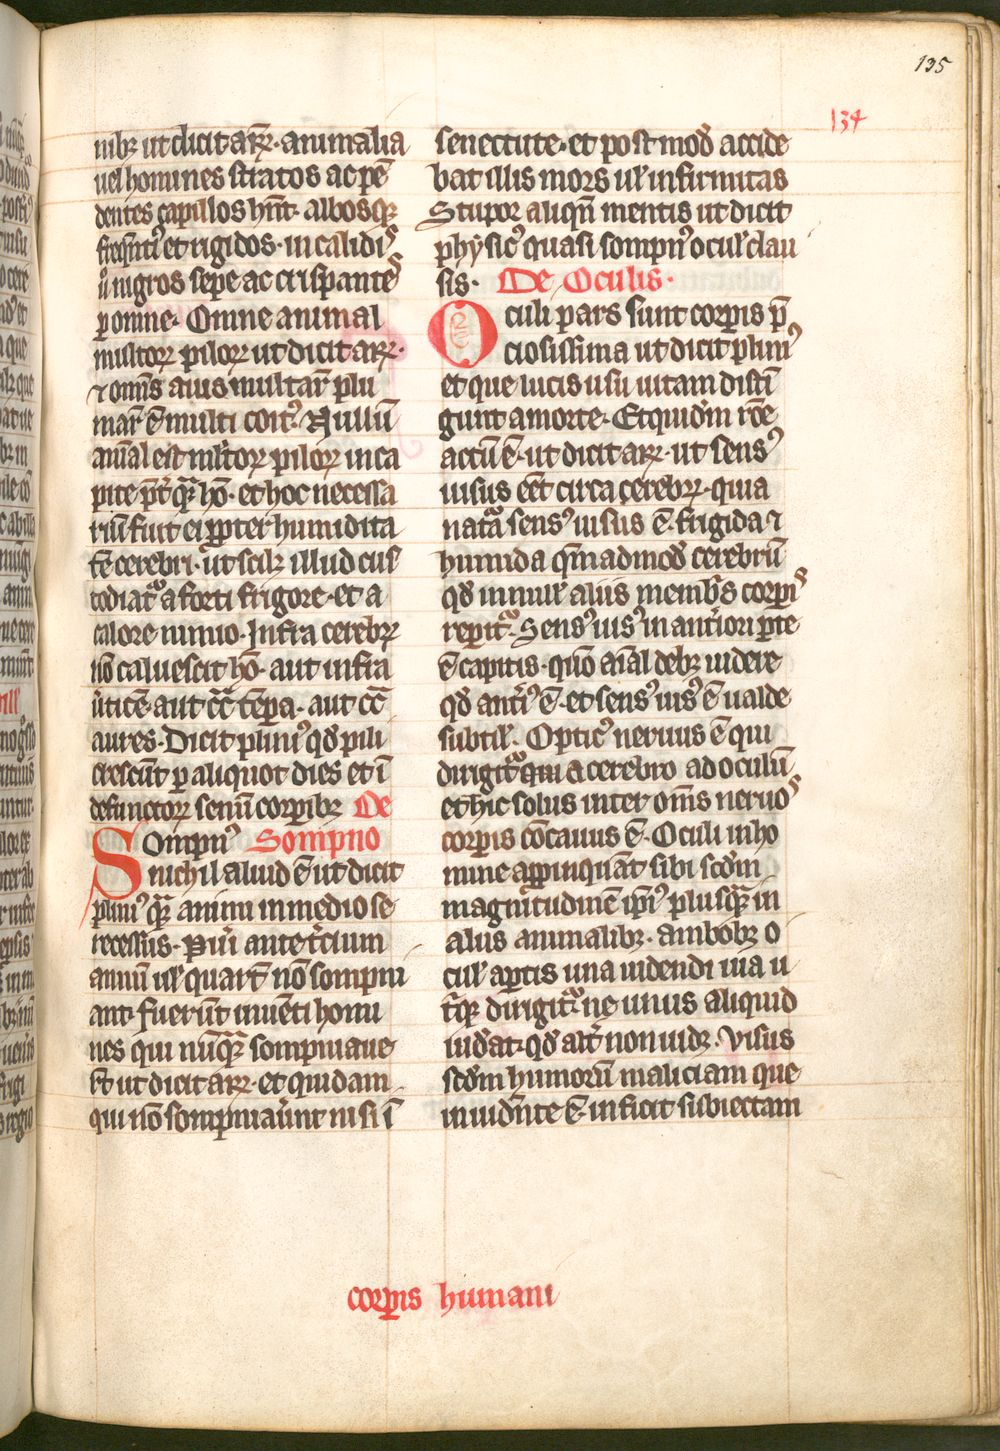 135
134
nibꝫ ut dicit arꝫ. animalia
uel homines stratos ac pē
dentes capillos hn̄t. albosqꝫ
et rigidos. in calidis
ů nigros sepe ac crispantes
ꝑ omne. Omne animal
multoꝝ piloꝝ ut dicit arꝫ.
⁊ omīs auis multar̄ plu
mar̄ ē multi coitꝰ. Nullū
aīal est piloꝝ in ca
pite hō. et hoc necessa
riū fuit ei ꝓpter humidita
tē cerebri. ut scilꝫ illud cus
todiat᷑ a forti frigore. et a
calore nimio. Infra cerebꝝ
nō caluescit hō. aut infra
ůticē. aut cc̄ tēpora. aut cc̄
aures. Dicit pliniꝰ qd̄ pili
crescūt ꝑ aliquot dies et ī
defunctoꝝ senū corpibꝫ De
Sompnꝰ Sompno
nichil aliud ē ut dicit
pliniꝰ qᷓꝫ animi in medio se
recessus. Půi ante tͥcium
annū ul̓ quart̄ nō sompni
ant. fuerūt inuēti homi
nes qui nūqᷓꝫ sompniaue
rt̄ ut dicit arꝫ. et quidam
qui nō sompniauerūt nisi ī
senectute. et post mod̄ accide
bat illis mors ul̓ infirmitas
Stupor aliqn̄ mentis ut dicit
physicꝰ quasi sompnꝰ ocul̓ clau
sis. De Oculis.
Oculi pars sunt corpis p̄
ciosissima ut dicit pliniꝰ
et que lucis usu uitam disti
gunt a morte. Et quidm̄ rōe
actū ē. ut dicit arꝫ. ut sensꝰ
uisus eēt circa cerebꝝ. quia
nat᷑a sensꝰ uisus ē frigida ⁊
humida qm̄admod̄ cerebrū
qd̄ in null̓ aliis membs̄ corpis
reperit᷑. Sensꝰ uisꝰ in antiori ꝑte
ē capitis. quō aīal debꝫ uidere
qd̄ antiꝰ ē. et sensꝰ uisꝰ ē ualde
subtil̓. Opticꝰ neruus ē qui
dirigit᷑ a cerebro ad oculū
et hic solus inter om̄s neruos
corpis cōcauus ē. Oculi in ho
mine appinquāt sibi scd̄m
magnitudinē ipiꝰ plusqᷓꝫ in
aliis animalibꝫ. ambobꝫ o
cul̓ aꝑtis una uidendi uia u
tͥqꝫ dirigit᷑ ne unus aliquid
uideat. qd̄ alt̄ non uidꝫ. Visus
scd̄m humorū maliciam que
in uidente ē. inficit subiectam
corpis humani